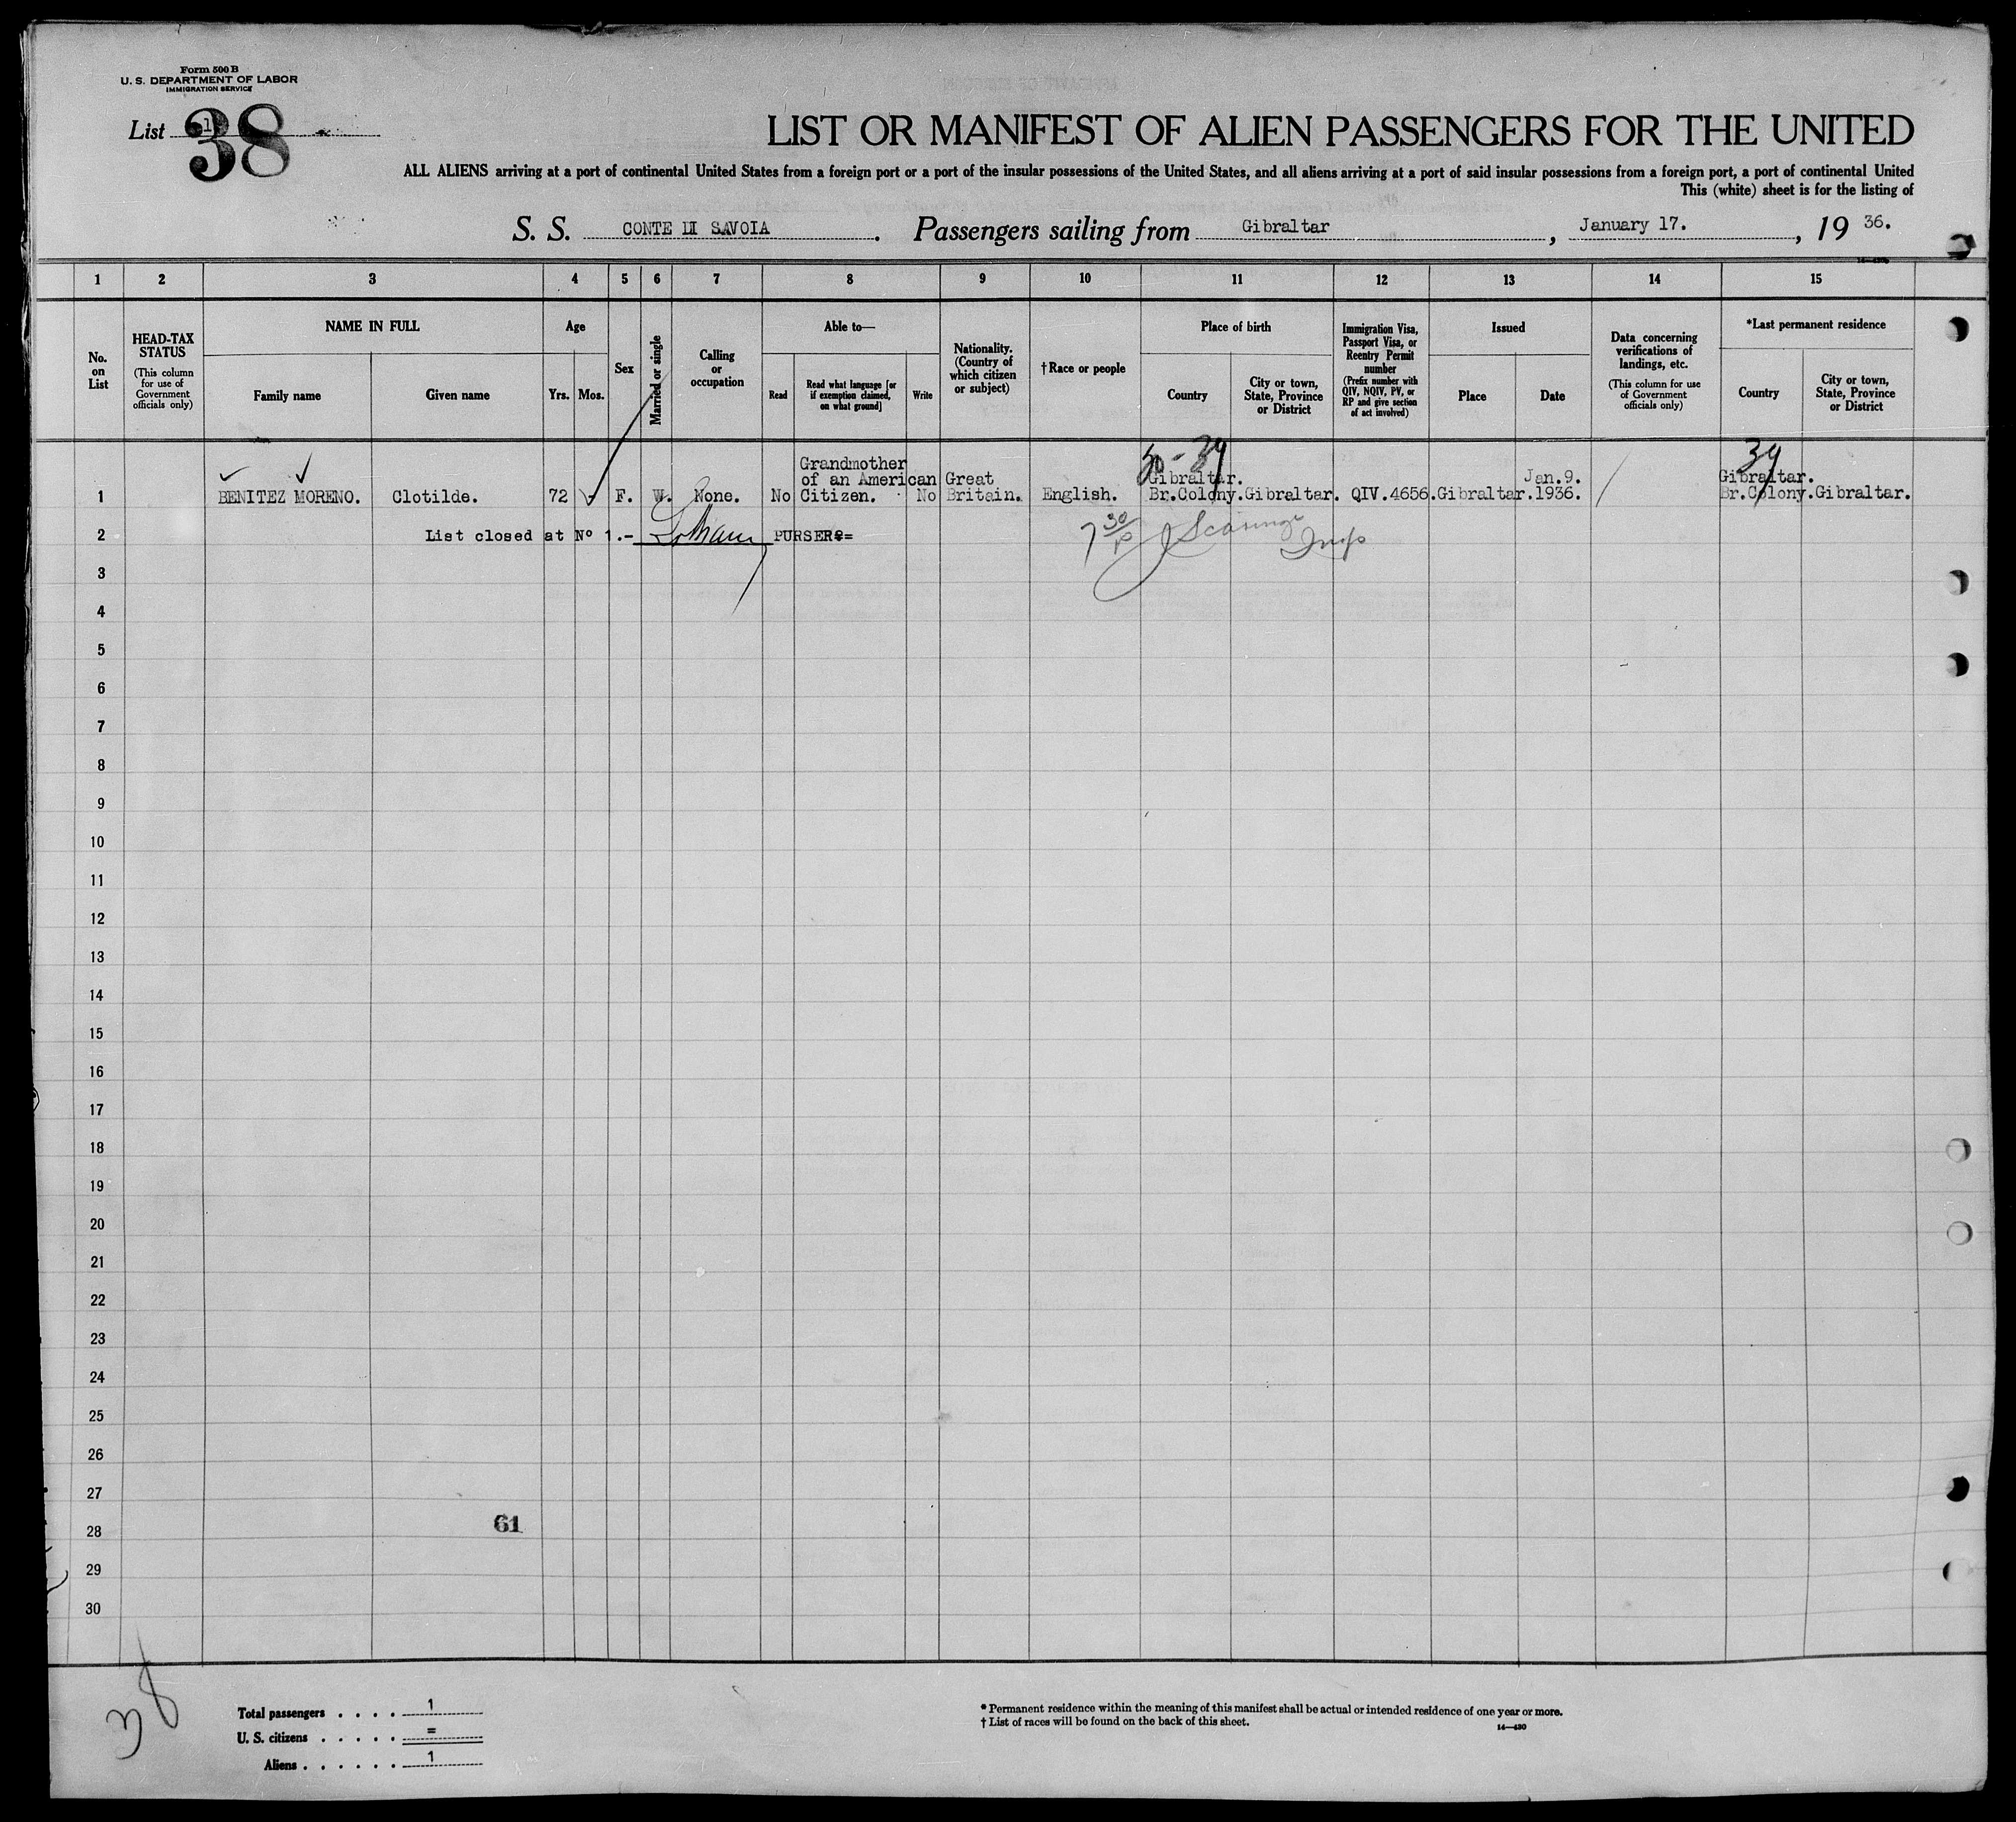 Form 500 B
U. S. DEPARTMENT OF LABOR
IMMIGRATION SERVICE
List 1
38
LIST OR MANIFEST OF ALIEN PASSENGERS FOR THE UNITED
ALL ALIENS arriving at a port of continental United States from a foreign port or a port of the insular possessions of the United States, and all aliens arriving at a port of said insular possessions from a foreign port, a port of continental United
This (white) sheet is for the listing of
S. S. CONTE DI SAVOIA. Passengers sailing from Gibraltar, January 17., 19 36.
1 2 3 4 5 6 7 8 9 10 11 12 13 14 15
No. on List
HEAD-TAX STATUS
(This column for use of Government officials only)
NAME IN FULL
Family name
Given name
Age
Yrs.
Mos.
Sex
Married or single
Calling or occupation
Able to—
Read
Read what language [or if exemption claimed, on what ground]
Write
Nationality. (Country of which citizen or subject)
†Race or people
Place of birth
Country
City or town, State, Province or District
Immigration Visa, Passport Visa, or Reentry Permit number
(Prefix number with QIV, NQIV, PV, or RP and give section of act involved)
Issued
Place
Date
Data concerning verifications of landings, etc.
(This column for use of Government officials only)
*Last permanent residence
Country
City or town, State, Province or District
1 BENITEZ MORENO. Clotilde. 72 - F. W. None. No Grandmother of an American Citizen. No Great Britain. English. Gibraltar. Br.Colony. Gibraltar. QIV.4656. Gibraltar. Jan.9. 1936. Gibraltar. Br.Colony. Gibraltar.
39
2 List closed at Nº 1.- PURSER=
7 30
3
4
5
6
7
8
9
10
11
12
13
14
15
16
17
18
19
20
21
22
23
24
25
26
27
61
28
29
30
38
Total passengers . . . . 1
U. S. citizens . . . . . =
Aliens . . . . . . 1
* Permanent residence within the meaning of this manifest shall be actual or intended residence of one year or more.
† List of races will be found on the back of this sheet.
14—430